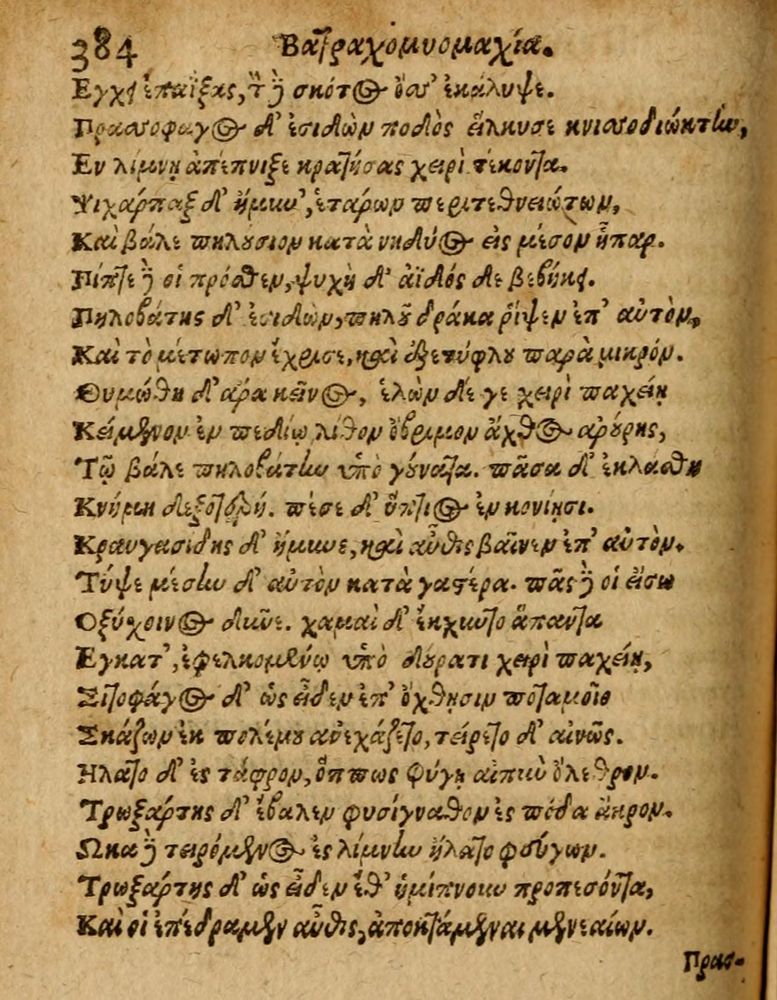 384 Βατραχομυομαχία.
Εγχ{ει} ἐπαΐξας, τ δὲ σκότος ὄσσ' ἐκάλυψε.
Πρασσοφαγος δ' ἐσιδὼν ποδὸς εἵλκυσε κνισσοδιώκτην,
Εν λίμνῃ ἀπέπνιξε κρατήσας χειρὶ τένοντα.
Ψιχάρπαξ δ' ἤμυν', ἑτάρων περιτεθνειώτων,
Καὶ βάλε πηλούσιον κατὰ νηδύος εἰς μέσον ἧπαρ.
Πίπτε δὲ οἱ πρόσθεν, ψυχὴ δ' ἀϊδός δε βεβήκει.
Πηλοβάτης δ' ἐσιδὼν, πηλοῦ δράκα ῥίψεν ἐπ' αὐτὸν,
Καὶ τὸ μέτωπον ἔχρισε, καὶ ἐξετύφλου παρὰ μικρόν.
Θυμώθη δ' ἄρα κεῖνος, ἑλὼν δέ γε χειρὶ παχείῃ
Κείμενον ἐν πεδίῳ λίθον ὄβριμον ἄχθος ἀρούρης,
Τῷ βάλε πηλοβάτην ὑπὸ γούνατα. πᾶσα δ' ἐκλάσθη
Κνήμη δεξιτερή. πέσε δ' ὕπτιος ἐν κονίῃσι.
Κραυγασίδης δ' ἤμυνε, καὶ αὖθις βαῖνεν ἐπ' αὐτόν.
Τύψε μέσην δ' αὐτὸν κατὰ γαστέρα. πᾶς δὲ οἱ εἴσω
Οξύχοινος δῦνε. χαμαὶ δ' ἔκχυντο ἅπαντα
Εγκατ', ἐφελκομένῳ ὑπὸ δούρατι χειρὶ παχείῃ,
Σιτοφάγος δ' ὡς εἶδεν ἐπ' ὄχθῃσιν ποταμοῖο
Σκάζων ἐκ πολέμου ἀνεχάζετο, τείρετο δ' αἰνῶς.
Ηλατο δ' ἐς τάφρον, ὅππως φύγῃ αἰπὺν ὄλεθρον.
Τρωξάρτης δ' ἔβαλεν φυσίγναθον ἐς πόδα ἄκρον.
Ωκα δὲ τειρόμενος ἐς λίμνην ἥλατο φεύγων.
Τρωξάρτης δ' ὡς εἶδεν ἔθ' ἡμίπνοιον προπεσόντα,
Καὶ οἱ ἐπέδραμεν αὖθις, ἀποκτάμεναι μενεαίνων.
Πρασ-